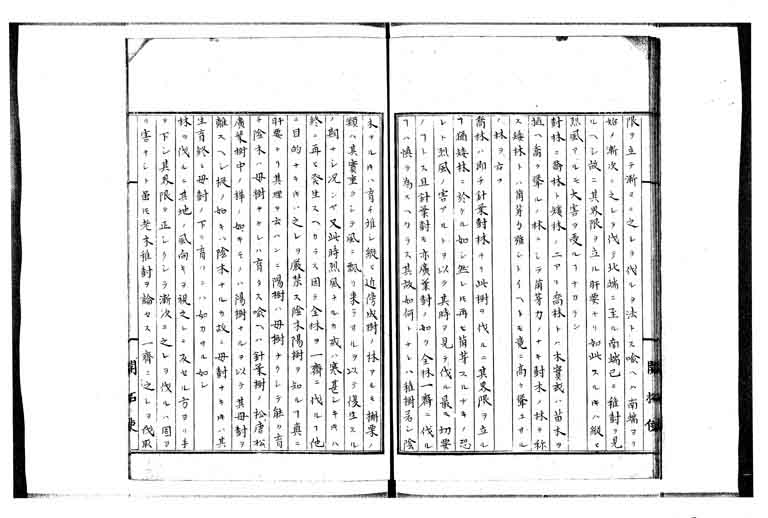 限ヲ立テ漸ヲ以之レヲ伐ルヲ法トス喩ヘハ南端ヨリ
始メ漸次ニ之レヲ伐リ北端ニ至ル南端已ニ稚樹ヲ見
ルヘシ故ニ其界限ヲ立ル肝要ナリ如此スルキハ縦ヒ
烈風アルモ大害ヲ受ルフナカラン
樹林ニ喬林ト矮林ノ二アリ喬林トハ木實或ハ苗木ヲ
植ヘ喬ク聳ルノ林ニシテ萌芽力ノナキ樹木ノ林ヲ称
ス矮林トハ萌芽
ノ林ヲ云フ
喬林ハ即チ針葉樹林ナリ此樹ヲ伐ルニ其界限ヲ立ル
フ猶矮林ニ於ケル如シ然レ
レ烈風ノ害アルトヲ以テ其時ヲ見テ伐ル最モ切要
ノフトス且針葉樹モ亦廣葉樹ノ如ク全林一齊ニ伐ル
フハ慎テ為スヘカラス其故如何トナレハ稚樹若シ陰
木ナルキハ育チ難シ縦ヒ近傍成樹ノ林アルモ樹栗ノ
類ハ其實重クシテ風ニ飄リ来ラサルヲ以テ復生スル
ノ期ナシ况ンヤ又此時烈風ナルカ或ハ寒甚シキキハ
終ニ再ヒ発生スヘカラス因テ全林ヲ一齊ニ伐ルフ他
ニ目的ナキキハ之レヲ厳禁ス陰木陽樹ヲ知ルフ真ニ
肝要ナリ其理ヲ云ハンニ陽樹ハ母樹ナクシテ能ク育
チ陰木ハ母樹ナケレハ育タス喩ヘハ針葉樹ノ松唐松
廣葉樹中ノ樺ノ如キモノハ陽樹ナルヲ以テ其母樹ヲ
離スヘシ樅ノ如キハ陰木ナルカ故ニ母樹ナキキハ其
生育終ニ母樹ノ下ニ育ツニハ如カサル如シ
林ヲ伐ルニ其地ノ風向キヲ視テ之レニ反セル方ヨリ手
ヲ下シ其界限ヲ正シクシテ漸次ニ之レヲ伐ルハ固ヨ
リ害ナシト雖モ老木稚樹ヲ論セス一齊ニ之レヲ伐取
開拓使
開拓使